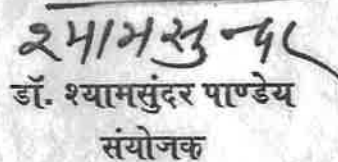 श्यामसुन्दर
डॉ. श्यामसुंदर पाण्डेय
संयोजक